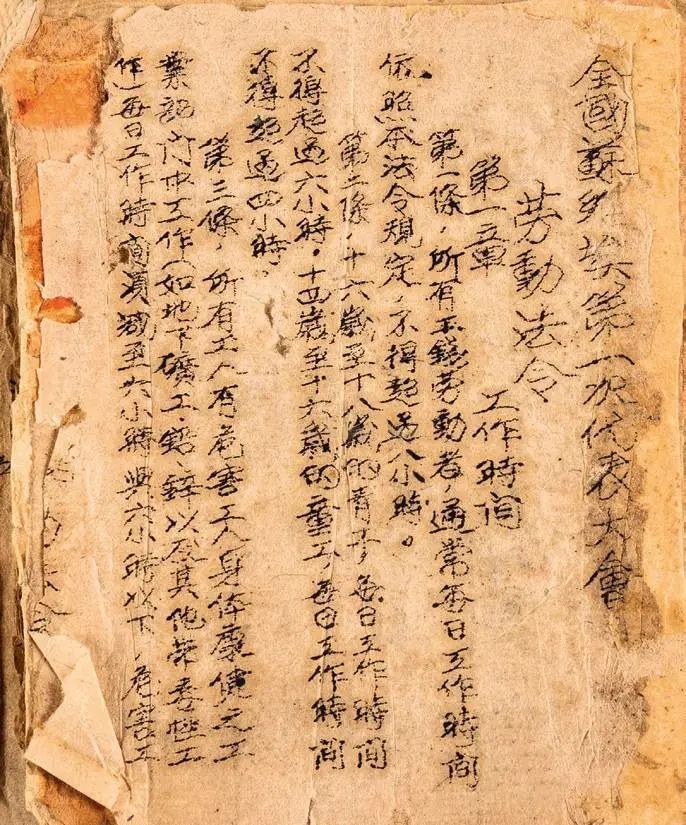 全國蘇維埃第一次代表大會
劳動法令
第一章 工作時间
第一條,所有工錢劳動者,通常每日工作時间
依照本法令規定,不得超过八小時。
第二條,十六歲至十八歲的青工,每日工作時间
不得超过六小時。十四歲至十六歲的童工,每日工作時间
不得超过四小時。
第三條,所有工人有危害工人身体康健之工
業部門中工作(如地下礦工、鉛、鋅以及其他帶毒性工
作)每日工作時间須减至六小時與六小時以下,危害工